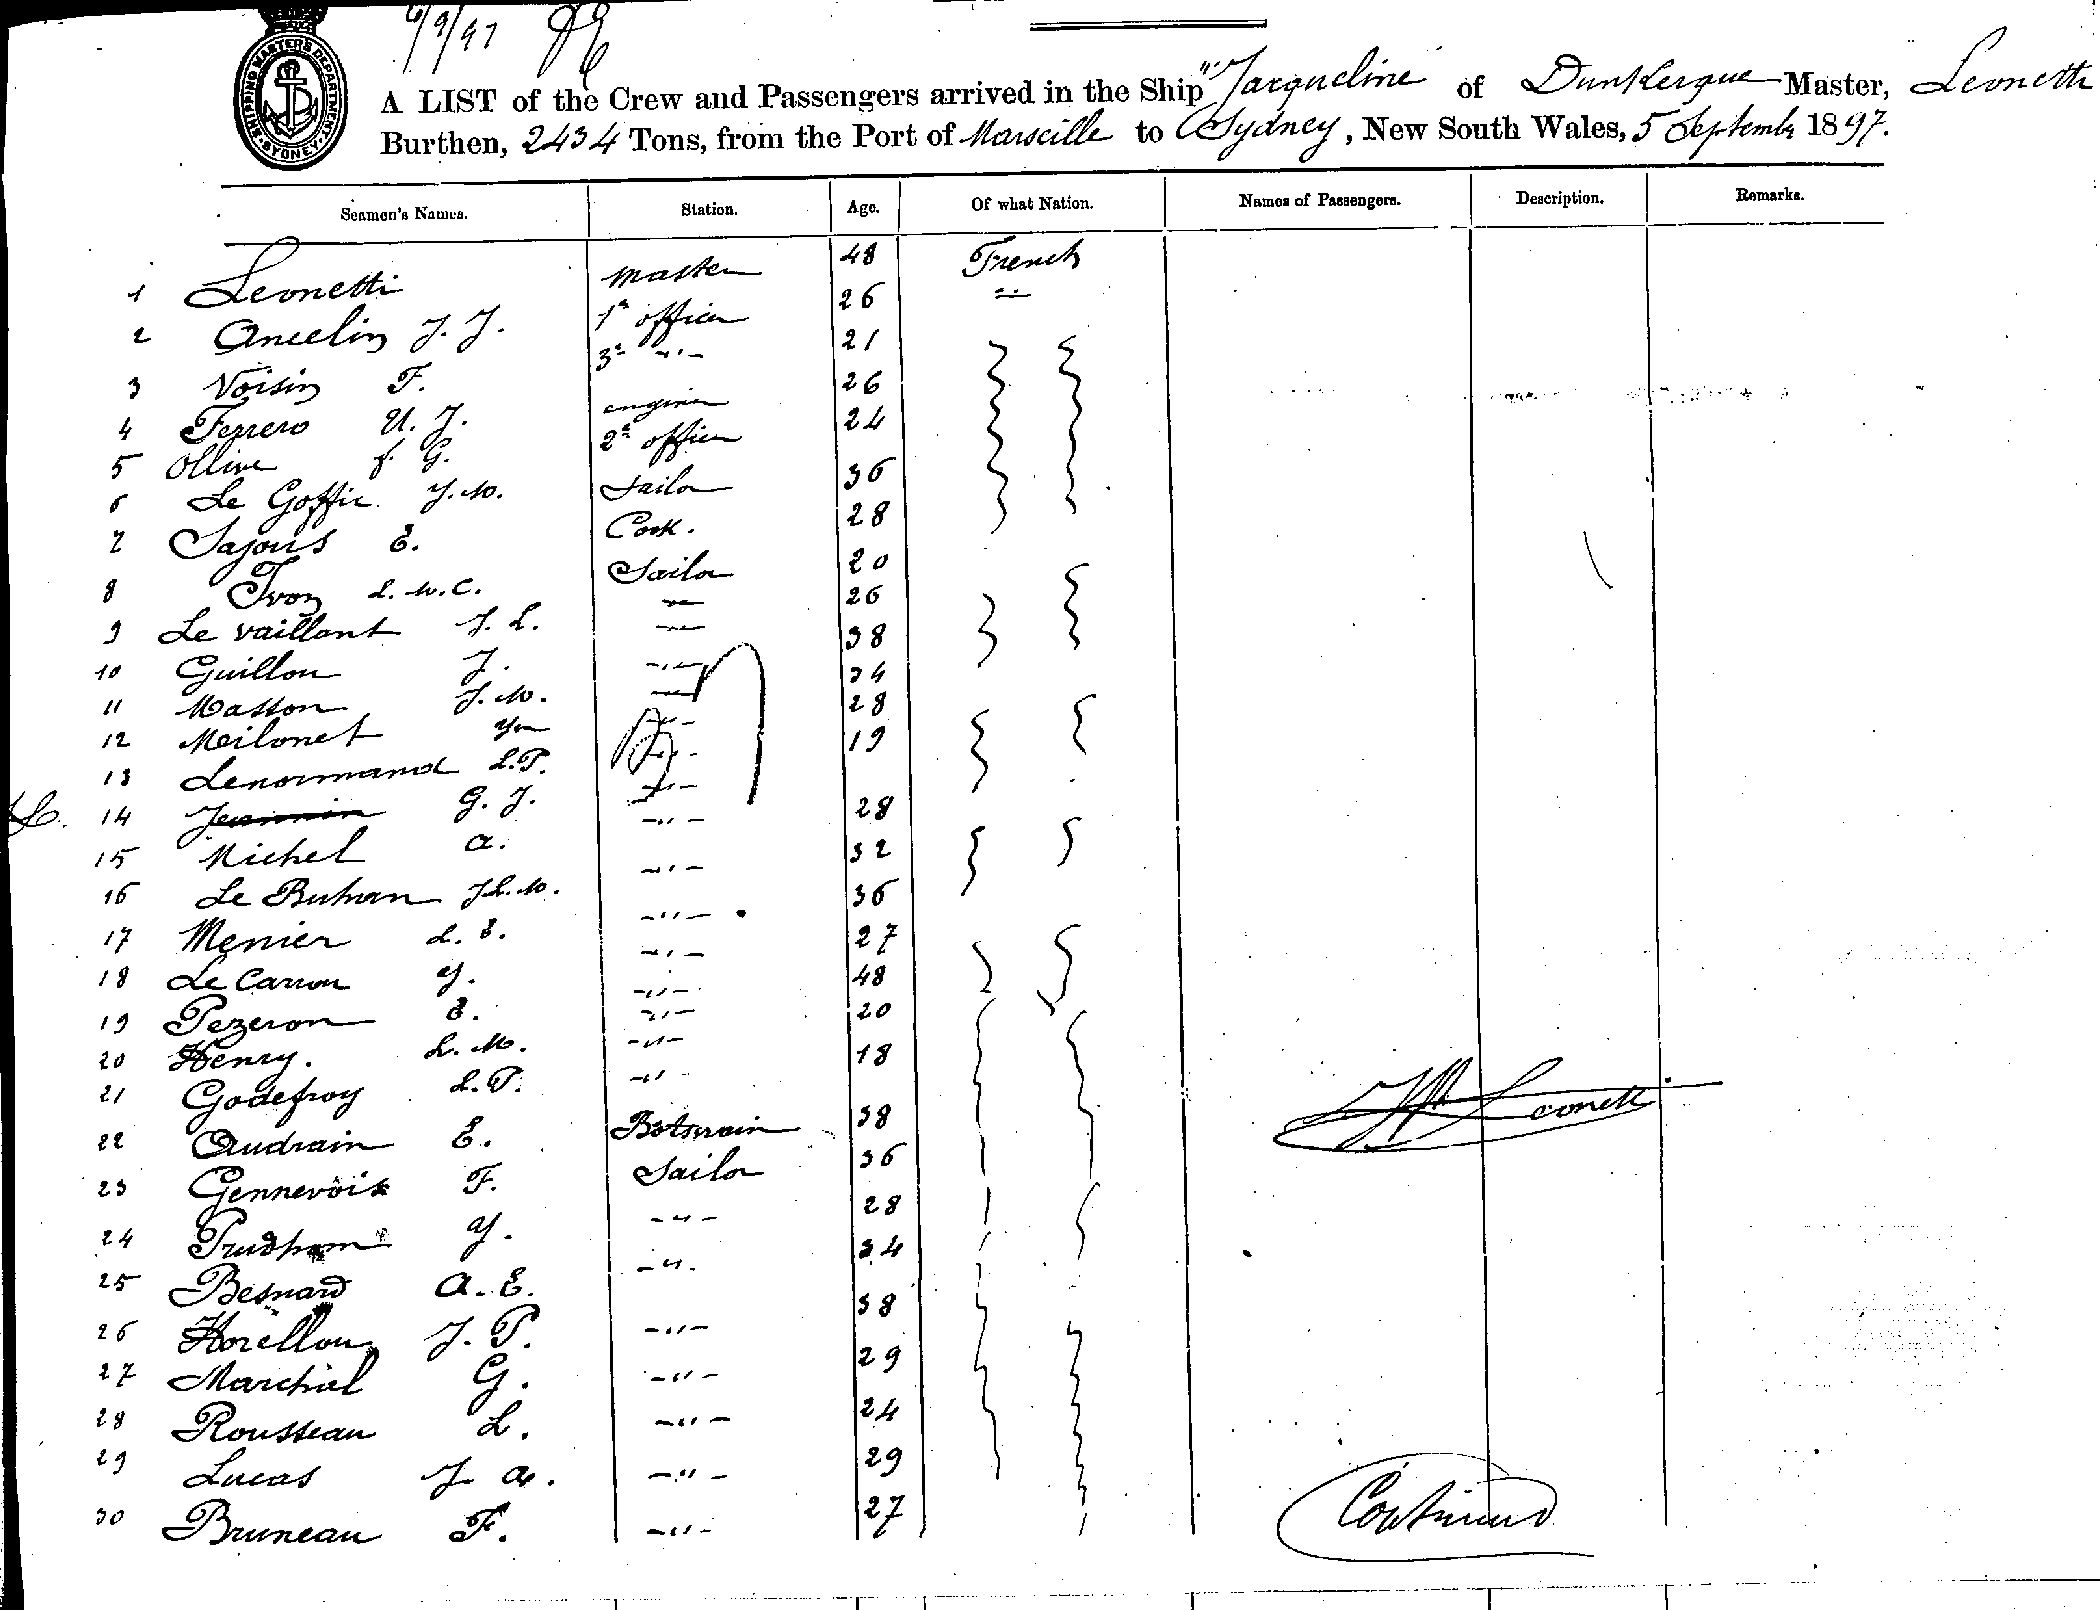 6/9/97
SHIPPING MASTERS DEPARTMENT SYDNEY
A LIST of the Crew and Passengers arrived in the Ship "Jacqueline of Dunkerque Master, Leonetti
Burthen, 2434 Tons, from the Port of Marseille to Sydney, New South Wales, 5 Septembr 1897.
Seamen's Names. Station. Age. Of what Nation. Names of Passengers. Description. Remarks.
1 Leonetti master 48 French
2 Ancelin J. J. 1st officer 26 -"-
3 Voisin F. 3d -"- 21
4 Ferrero U. J. engineer 26
5 Ollive f. G. 2d officer 24
6 Le Goffic. J. M. Sailor 36
7 Sajous E. Cook. 28
8 Ivon L. M. C. Sailor 20
9 Le vaillant J. L. -"- 26
10 Guillou J. -"- 38
11 Masson J. M. -"- 34
12 Meilonet Yon -"- 28
13 Lenormand L. P. -"- 19
14 G. J. -"-
15 Michel A. -"- 28
16 Le Buhan J. L. M. -"- 32
17 Menier L. E. -"- 36
18 Le Carrou Y. -"- 27
19 Pezeron E. -"- 48
20 Henry. L. M. -"- 20
21 Godefroy L. P. -"- 18
22 Audrain E. Botswain 38
23 Gennevois F. Sailor 36
24 Prudhom Y. -"- 28
25 Besnard A. E. -"- 34
26 Horellou J. P. -"- 38
27 Marchal G. -"- 29
28 Rousseau L. -"- 24
29 Lucas J A. -"- 29
30 Bruneau F. -"- 27
Leonetti
Continued